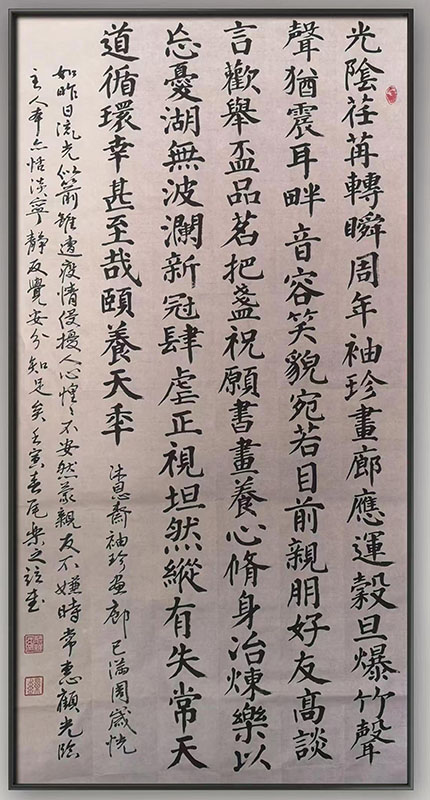 光陰荏苒轉瞬周年袖珍畫廊應運穀旦爆竹聲
聲猶震耳畔音容笑貌宛若目前親朋好友高談
言歡舉盃品茗把盞祝願書畫養心脩身冶煉樂以
忘憂湖無波瀾新冠肆虐正視坦然縱有失常天
道循環幸甚至哉頤養天秊
沐恩齋袖珍画廊已滿周歲恍
如昨日流光似箭雖遭疫情侵擾人心惶〻不安然蒙親友不嫌時常惠顧光臨
主人本亦恬淡寧靜反覺安分知足矣壬寅春尾樂之